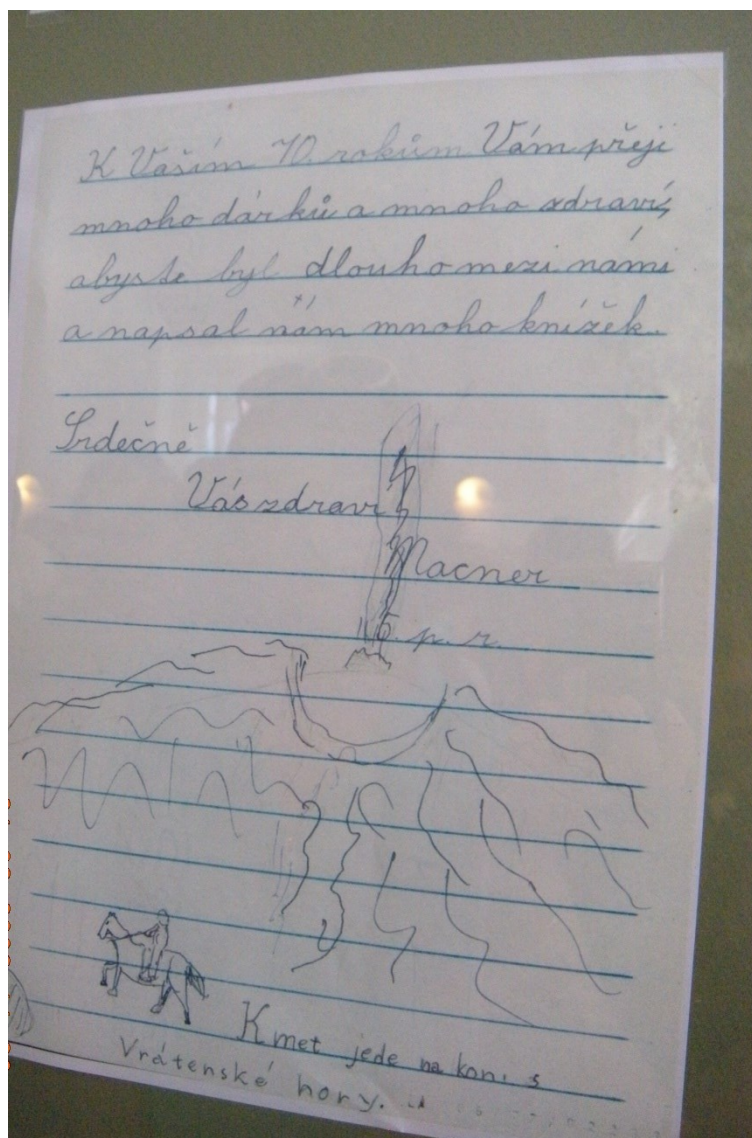 K Vašim 70. rokům Vám přeji
mnoho dárků a mnoho zdraví,
abyste byl dlouho mezi námi
a napsal nám mnoho knížek.
Srdečně
Vás zdraví
Macner
5. p. r.
Kmet jede na koni s
Vrátenské hory.